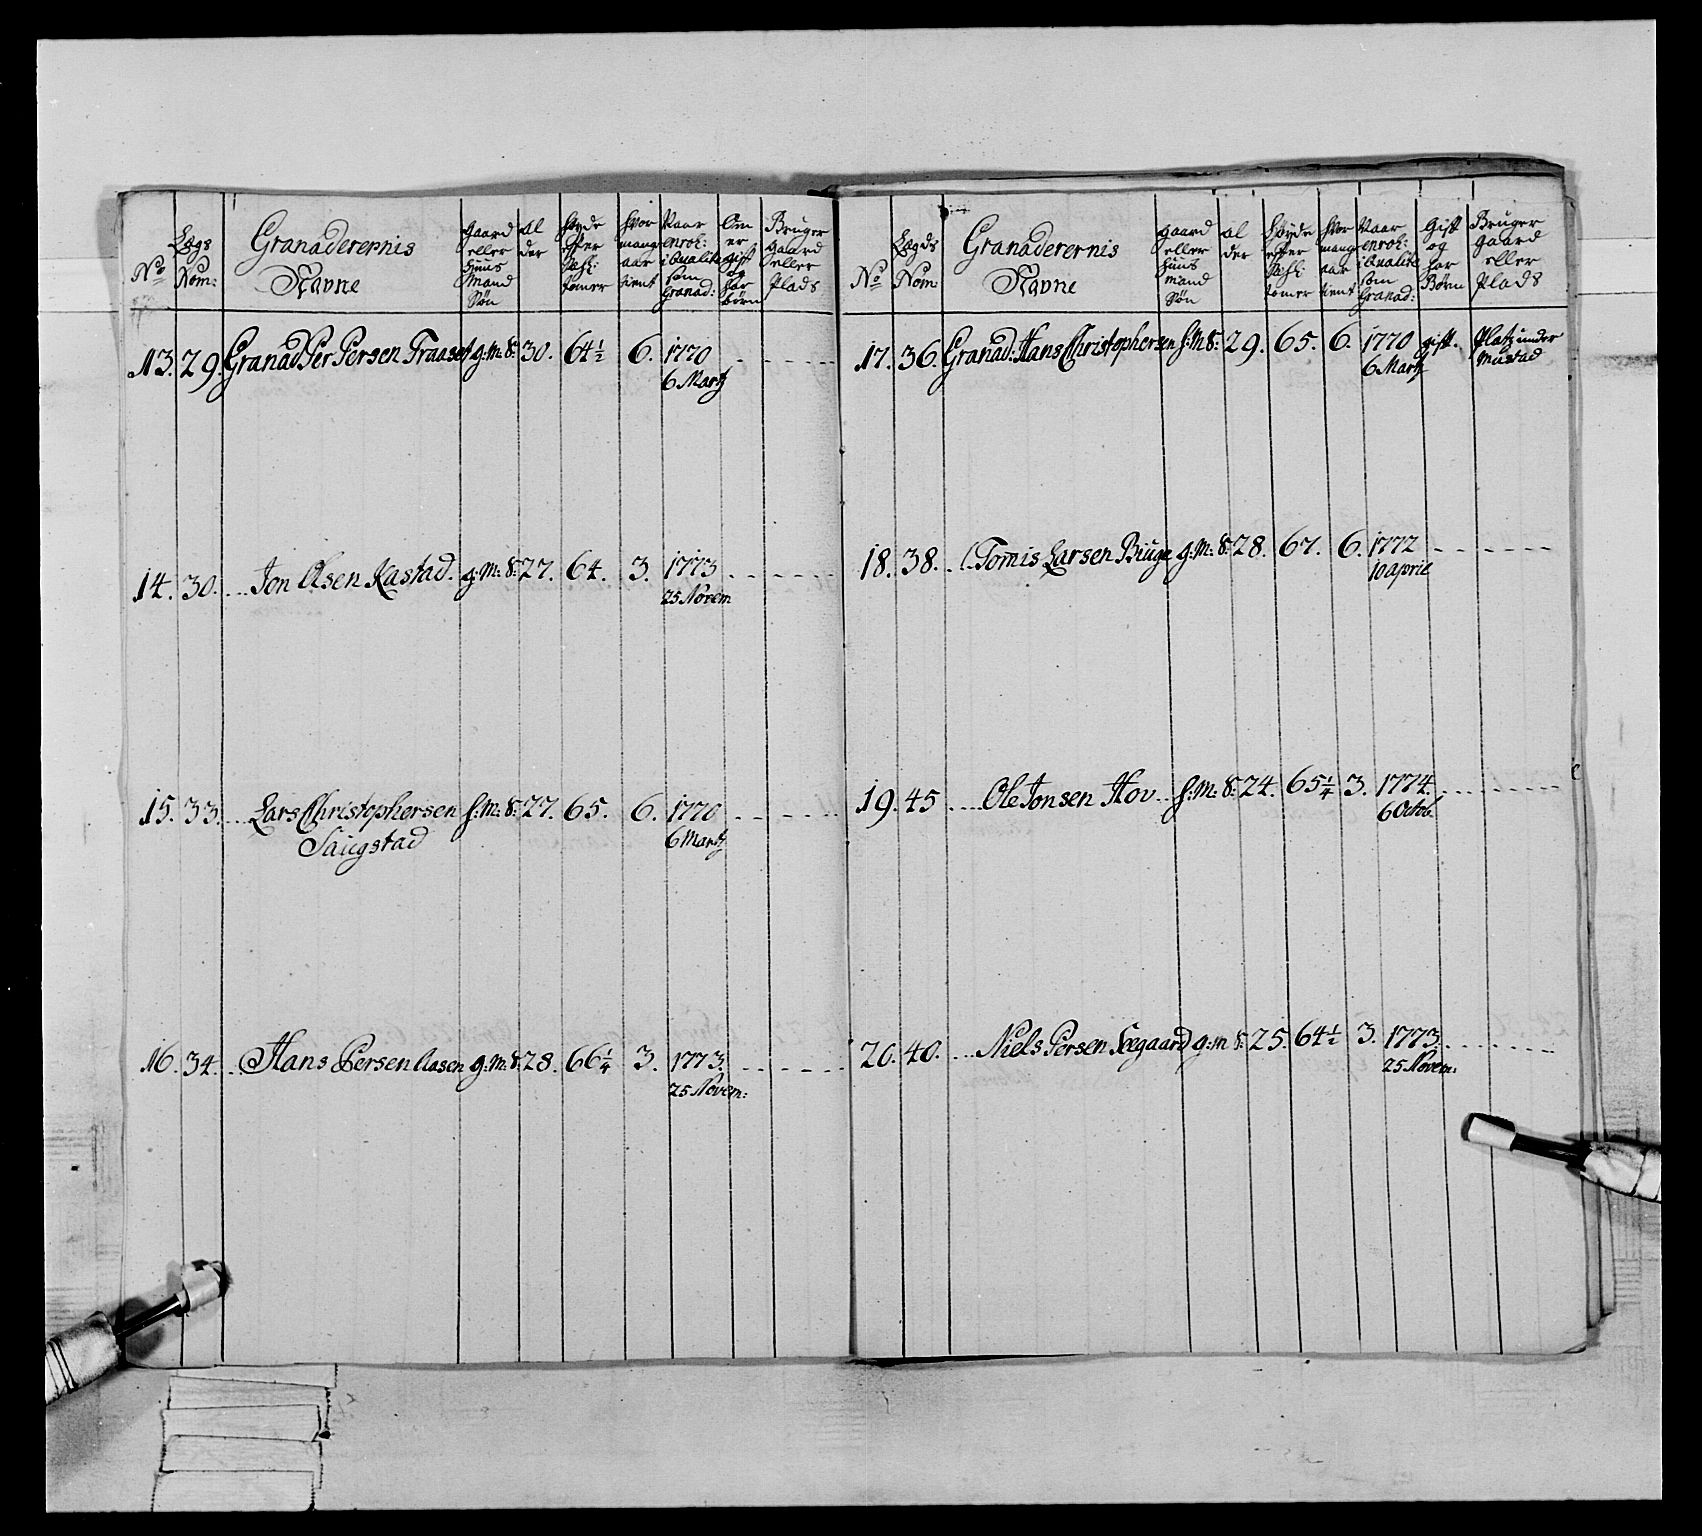 No
Lægs
Nom:
Granaderernis
Navne
gaard
eller
Huus
mand
Søn
Al
der
Høyde
efter
tomer
Hvor
mange
aar
tient
Naar
enrol:
i Qualite
som
Granad:
Om
er
gift
og
har
børn
Bruger
gaard
eller
Plads
13. 29. Granad Per Persen Traaset g: m: S: 30. 64½ 6. 1770
6 Martz
14. 30. Jon Olsen Kastad. g: m: S: 27. 64. 3. 1773
25 Novem
15. 33. Lars Christophersen h: m: S: 27. 65. 6. 1770
Saugstad 6 Martz
16. 34. Hans Persen Aasen g: m: S: 28. 66¼ 3. 1773.
25 Novem:
No
Lægds
Nom:
Granaderernis
Navne
gaard
eller
Huus
mand
Søn
al
der
Høyde
efter
tomer
Hvor
mang
aar
tient
Naar
enrol:
i Qualite
som
Granad:
Gift
og
har
Børn
Bruger
gaard
eller
Plads
17. 36. Granad: Hans Christophersen h: m S: 29. 65. 6. 1770 gift. Platz under
6 Martz Mustad
18. 38. Tomis Larsen Biuge g: m: S: 28. 67. 6. 1772
10 April
19. 45 Ole Jonsen Hov h: m: S: 24. 65¼ 3. 1774.
6 Octob.
20. 40. Niels Persen Seegaard g: m S: 25. 64½ 3. 1773.
25 Novem: